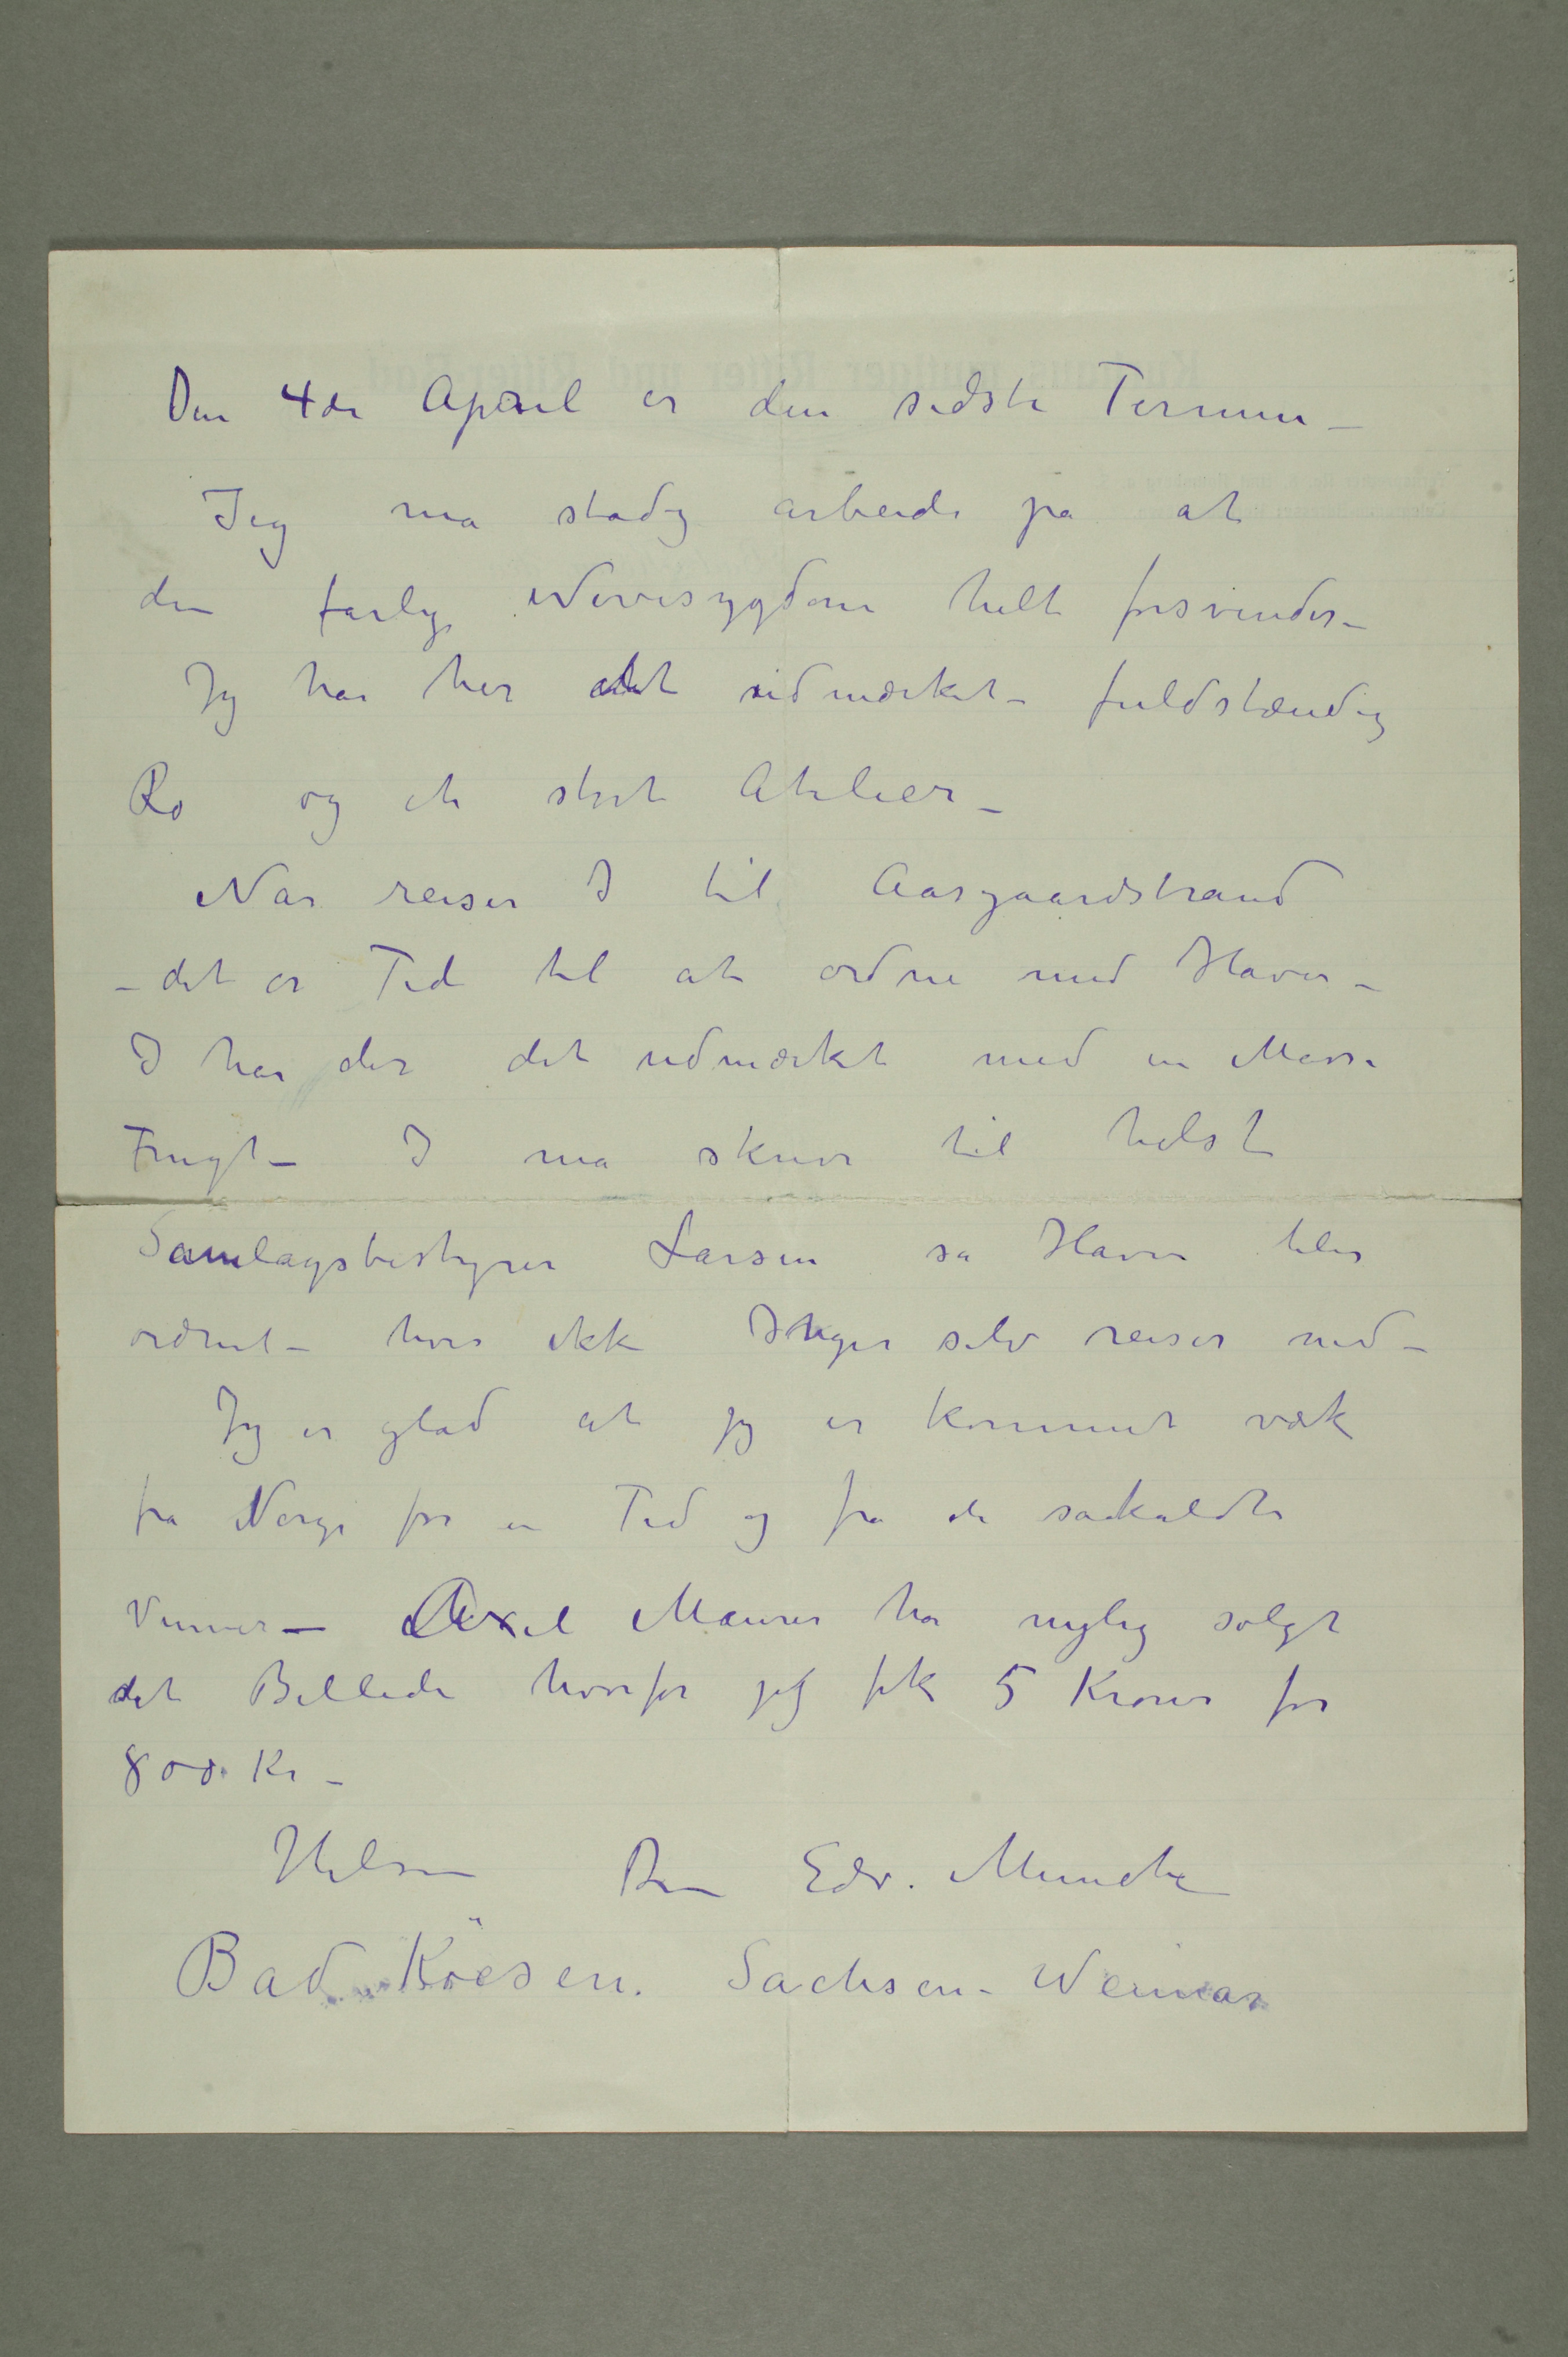 Den 4de April er den sidste Termin –
Jeg må stadig arbeide på at
den farlige Nervesygdom helt forsvinder –
Jeg har her det udmærket – fuldstændig
Ro og et stort Atelier –
Når reiser I til Aasgaardstrand
– det er Tid til at ordne med Haven –
I har der det udmærket med en Masse
Frugt – I må skrive til helst
Samlagsbestyrer Larsen så Haven blir
ordnet – hvis ikke Inger selv reiser ned –
Jeg er glad at jeg er kommet væk
fra Norge for en Tid og fra de såkaldte
Venner – Axel Maurer har nylig solgt
det Billede hvorfor jeg fik 5 Kroner for
800 Kr –
Hilsen Din Edv. Munch
Bad Köesen. Sachsen-Weimar